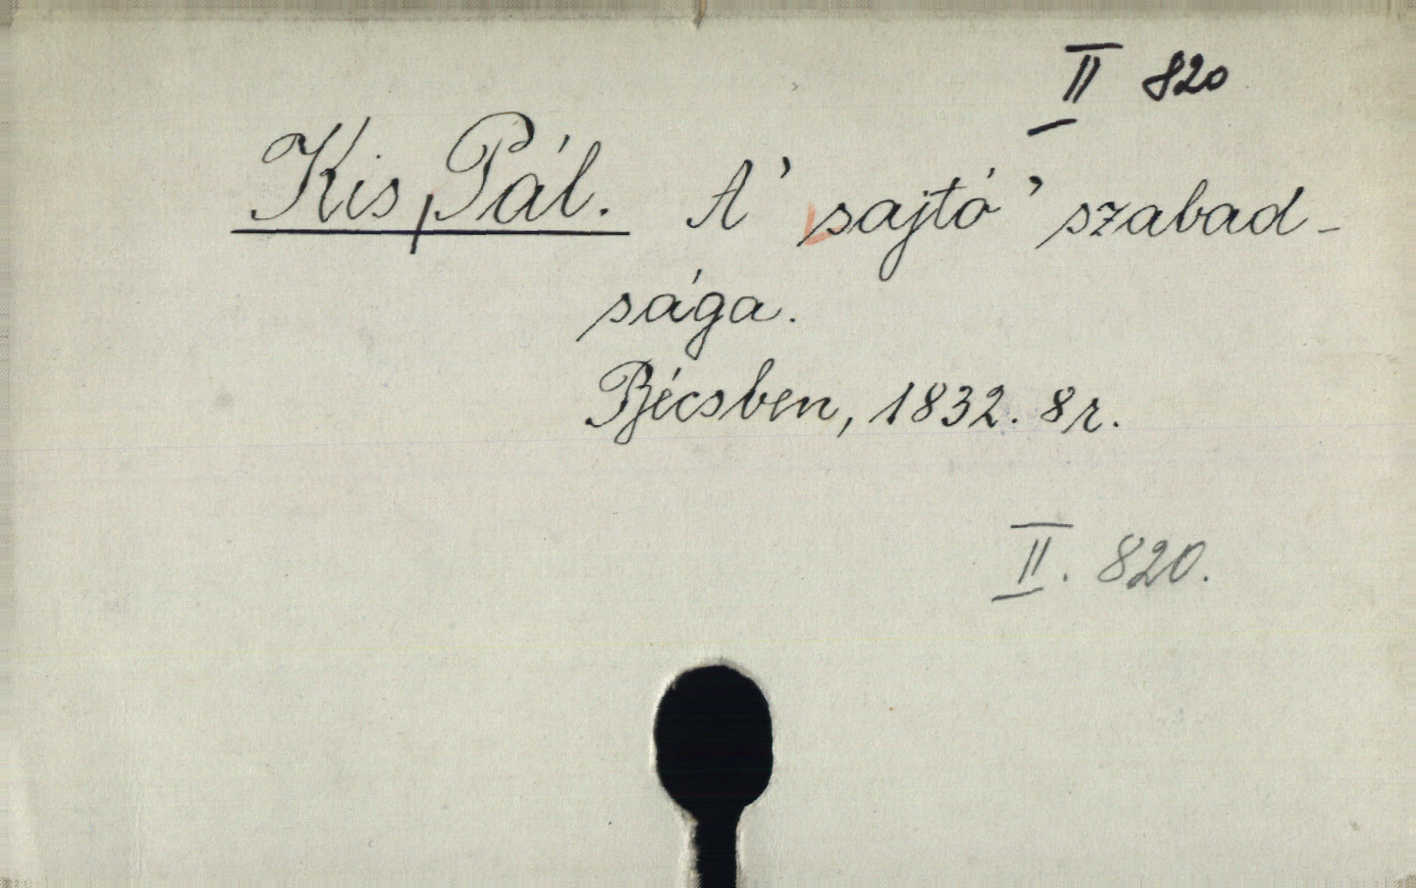 II 820
Kis, Pál. A' sajtó' szabad-
sága.
Bécsben, 1832. 8r.
II. 820.